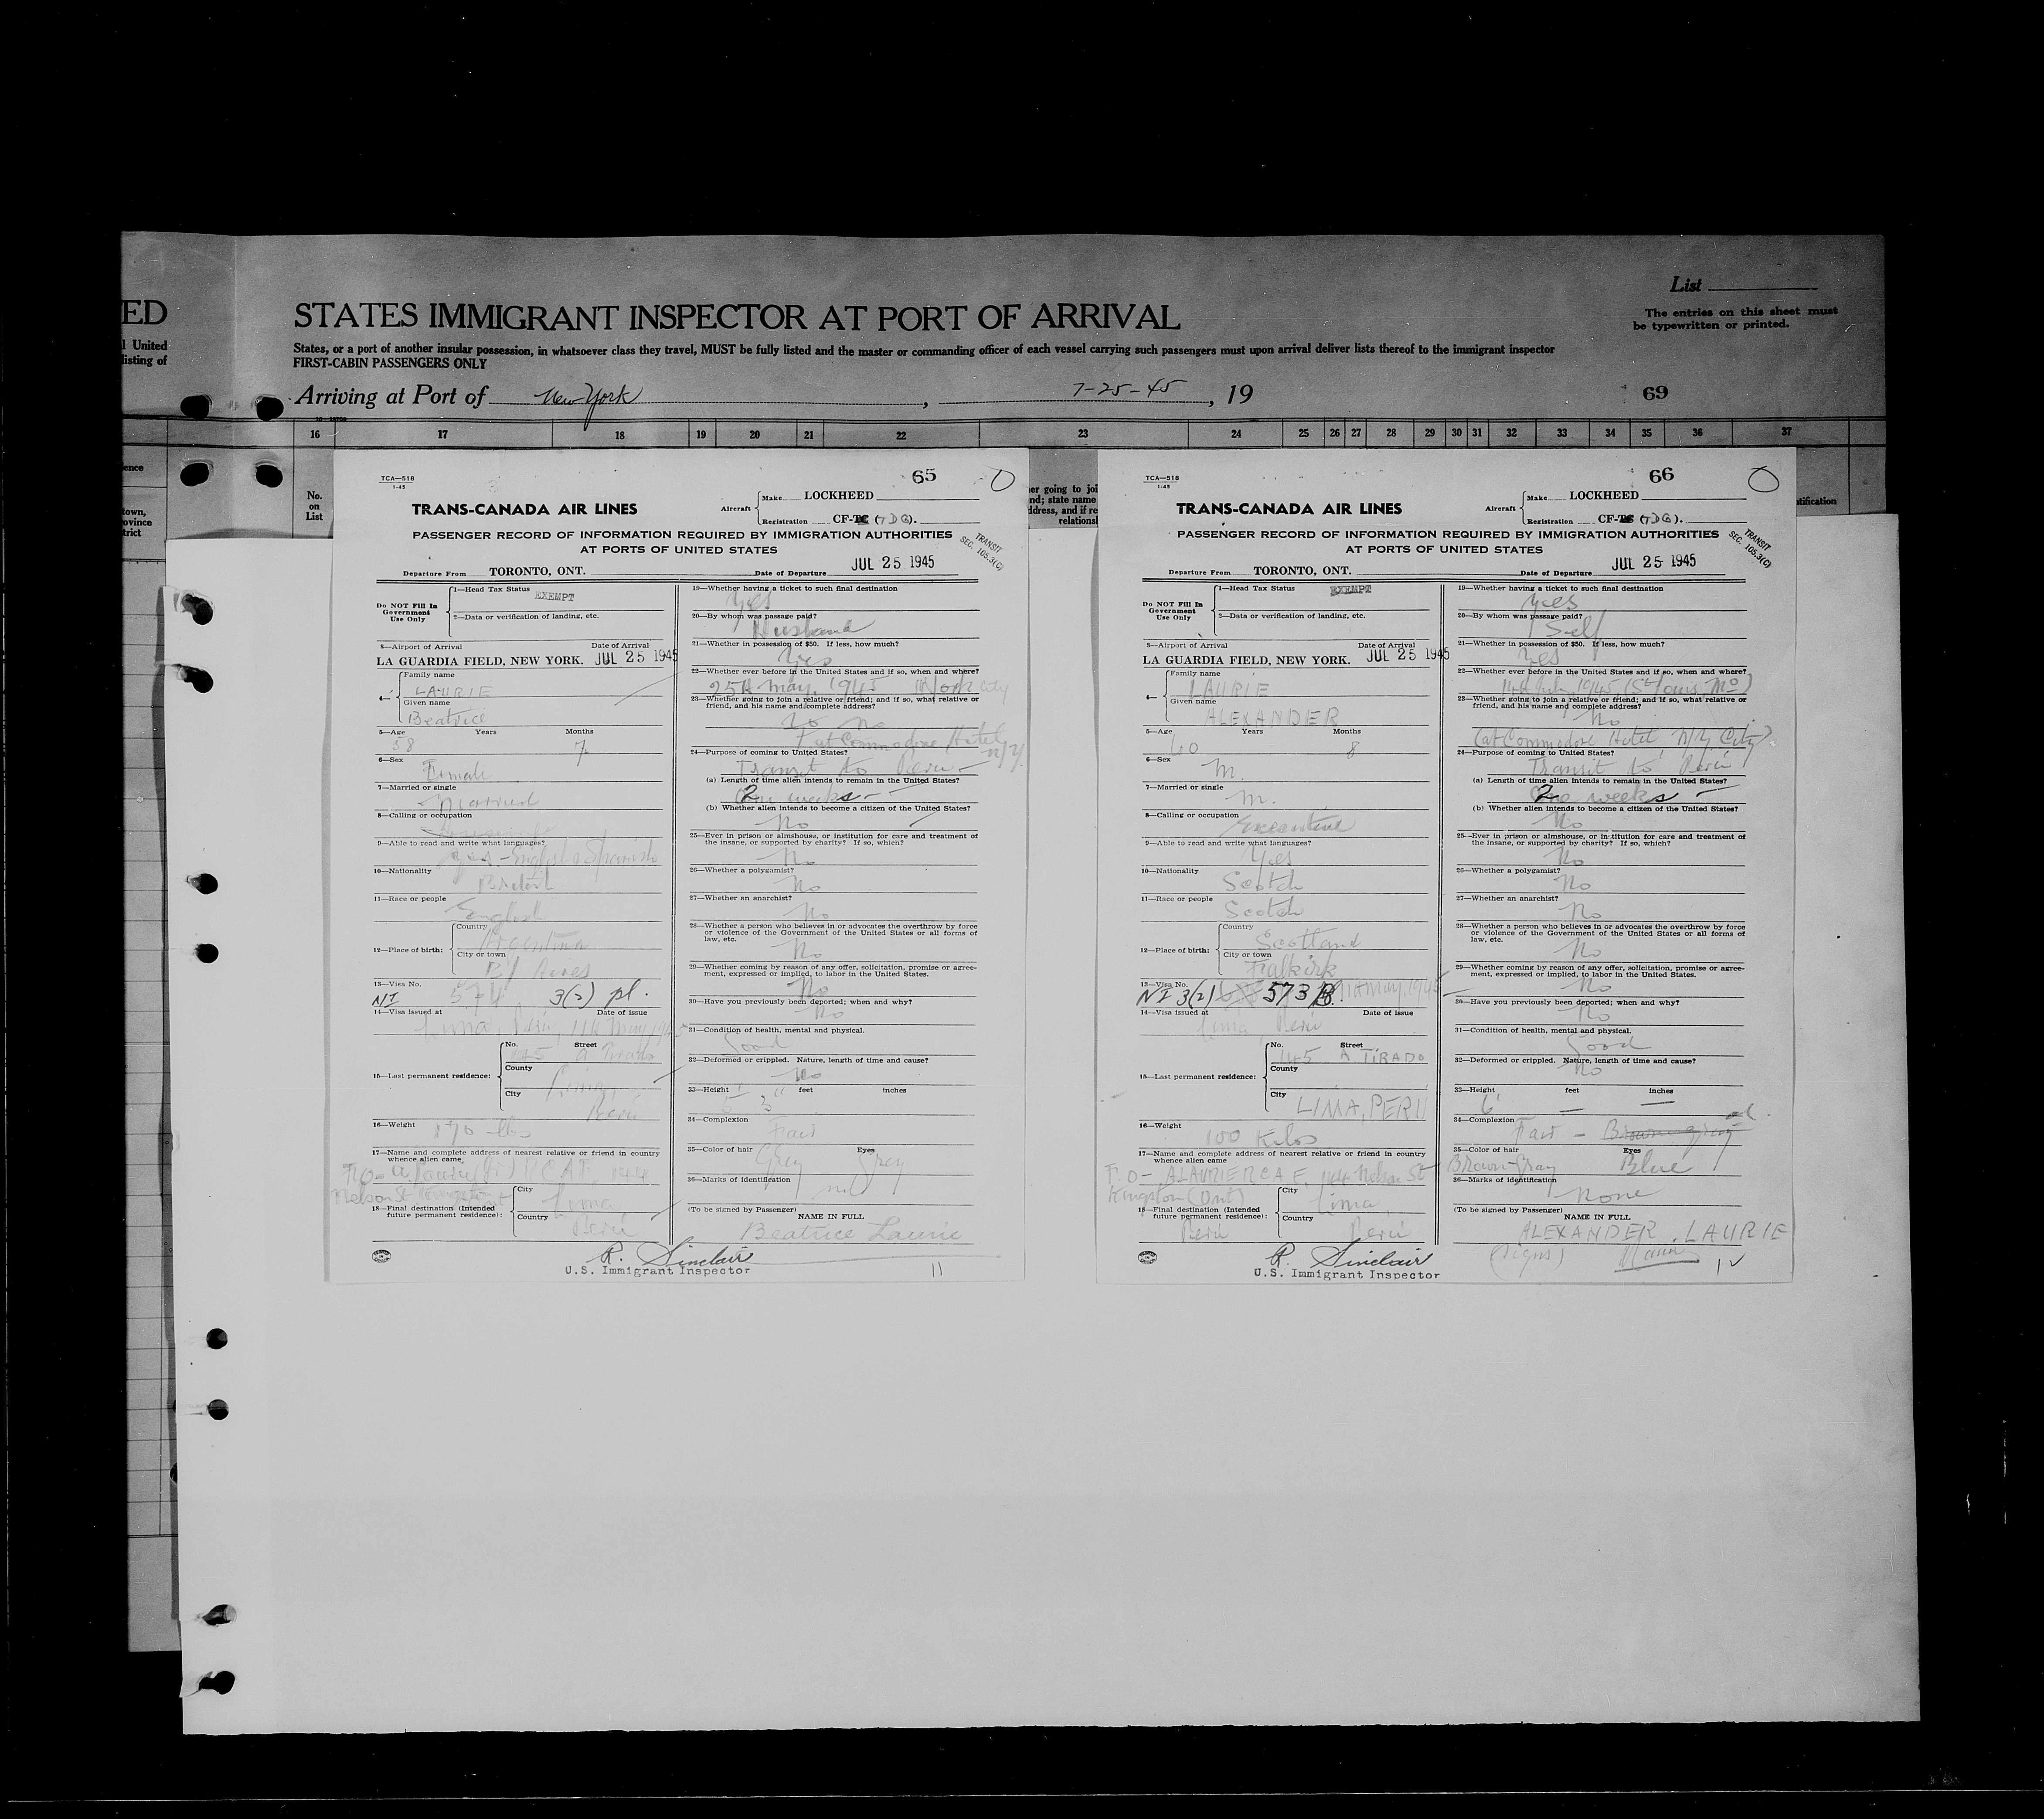 ED
STATES IMMIGRANT INSPECTOR AT PORT OF ARRIVAL
List
The entries on this sheet must
be typewritten or printed.
l United
listing of
States, or a port of another insular possession, in whatsoever class they travel, MUST be fully listed and the master or commanding officer of each vessel carrying such passengers must upon arrival deliver lists thereof to the immigrant inspector
FIRST-CABIN PASSENGERS ONLY
Arriving at Port of New York, 7-25-45, 19
69
16 17 18 19 20 21 22 23 24 25 26 27 28 29 30 31 32 33 34 35 36 37
ence
town,
ovince
trict
No.
on
List
er going to joi
nd; state name
ddress, and if re
relationsh
ntification
TCA—518
1-45
65
TRANS-CANADA AIR LINES
Aircraft
Make LOCKHEED
Registration CF-TC (TDG).
PASSENGER RECORD OF INFORMATION REQUIRED BY IMMIGRATION AUTHORITIES
AT PORTS OF UNITED STATES
TRANSIT
SEC. 105.3(C)
Departure From TORONTO, ONT. Date of Departure JUL 25 1945
Do NOT Fill In
Government
Use Only
1—Head Tax Status EXEMPT
2—Data or verification of landing, etc.
3—Airport of Arrival Date of Arrival
LA GUARDIA FIELD, NEW YORK. JUL 25 1945
4—
Family name
LAURIE
Given name
Beatrice
5—Age Years Months
58 7
6—Sex
Female
7—Married or single
Married
8—Calling or occupation
9—Able to read and write what languages?
Yes - English & Spanish
10—Nationality
British
11—Race or people
English
12—Place of birth:
Country
Argentina
City or town
B/ Aires
13—Visa No.
NI 574 3(2) pl.
14—Visa issued at Date of issue
Lima, Perú, 11th May 1945
15—Last permanent residence:
No. Street
145 A Tirado
County
Lima,
City
Perú
16—Weight
170 lbs
17—Name and complete address of nearest relative or friend in country
whence alien came
F.O - A Laurie RCAF 144
Nelson St Kingston Ont
18—Final destination (Intended
future permanent residence):
City
Lima,
Country
Perú
19—Whether having a ticket to such final destination
Yes
20—By whom was passage paid?
Husband
21—Whether in possession of $50. If less, how much?
Yes
22—Whether ever before in the United States and if so, when and where?
25th May, 1945 N York City
23—Whether going to join a relative or friend; and if so, what relative or
friend, and his name and complete address?
No
(at Commodore Hotel N/Y.
24—Purpose of coming to United States?
Transit to Perú -
(a) Length of time alien intends to remain in the United States?
2 weeks -
(b) Whether alien intends to become a citizen of the United States?
No
25—Ever in prison or almshouse, or institution for care and treatment of
the insane, or supported by charity? If so, which?
No
26—Whether a polygamist?
No
27—Whether an anarchist?
No
28—Whether a person who believes in or advocates the overthrow by force
or violence of the Government of the United States or all forms of
law, etc.
No
29—Whether coming by reason of any offer, solicitation, promise or agree-
ment, expressed or implied, to labor in the United States.
No
30—Have you previously been deported; when and why?
No
31—Condition of health, mental and physical.
Good
32—Deformed or crippled. Nature, length of time and cause?
No
33—Height feet inches
5' 3"
34—Complexion
Fair
35—Color of hair Eyes
Grey Grey
36—Marks of identification
nil
(To be signed by Passenger)
NAME IN FULL
Beatrice Laurie
R. Sinclair
U.S. Immigrant Inspector
11
TCA—518
1-45
66
TRANS-CANADA AIR LINES
Aircraft
Make LOCKHEED
Registration CF-TC (TDG).
PASSENGER RECORD OF INFORMATION REQUIRED BY IMMIGRATION AUTHORITIES
AT PORTS OF UNITED STATES
TRANSIT
SEC. 105.3(C)
Departure From TORONTO, ONT. Date of Departure JUL 25 1945
Do NOT Fill In
Government
Use Only
1—Head Tax Status EXEMPT
2—Data or verification of landing, etc.
3—Airport of Arrival Date of Arrival
LA GUARDIA FIELD, NEW YORK. JUL 25 1945
4—
Family name
LAURIE
Given name
ALEXANDER
5—Age Years Months
60 8
6—Sex
M.
7—Married or single
M.
8—Calling or occupation
Executive
9—Able to read and write what languages?
Yes
10—Nationality
Scotch
11—Race or people
Scotch
12—Place of birth:
Country
Scotland
City or town
Falkirk
13—Visa No.
NI 3(2) 573 11th May. 1945
14—Visa issued at Date of issue
Lima Perú
15—Last permanent residence:
No. Street
145 A TIRADO
County
City
LIMA, PERU
16—Weight
100 Kilos
17—Name and complete address of nearest relative or friend in country
whence alien came
F.O - A LAURIE RCAF, 144 Nelson St
Kingston (Ont)
18—Final destination (Intended
future permanent residence):
Perú
City
Lima,
Country
Perú
19—Whether having a ticket to such final destination
Yes
20—By whom was passage paid?
Self
21—Whether in possession of $50. If less, how much?
Yes
22—Whether ever before in the United States and if so, when and where?
1945, (St Louis, Mo)
23—Whether going to join a relative or friend; and if so, what relative or
friend, and his name and complete address?
No
(at Commodore Hotel N/Y City)
24—Purpose of coming to United States?
Transit to Perú
(a) Length of time alien intends to remain in the United States?
2 weeks -
(b) Whether alien intends to become a citizen of the United States?
No
25—Ever in prison or almshouse, or in-titution for care and treatment of
the insane, or supported by charity? If so, which?
No
26—Whether a polygamist?
No
27—Whether an anarchist?
No
28—Whether a person who believes in or advocates the overthrow by force
or violence of the Government of the United States or all forms of
law, etc.
No
29—Whether coming by reason of any offer, solicitation, promise or agree-
ment, expressed or implied, to labor in the United States.
No
30—Have you previously been deported; when and why?
No
31—Condition of health, mental and physical.
Good
32—Deformed or crippled. Nature, length of time and cause?
No
33—Height feet inches
6' — —
34—Complexion
Fair - Brown-gray
35—Color of hair Eyes
Brown-Gray Blue
36—Marks of identification
None
(To be signed by Passenger)
NAME IN FULL
ALEXANDER. LAURIE
(Signs)
R. Sinclair
U.S. Immigrant Inspector
12